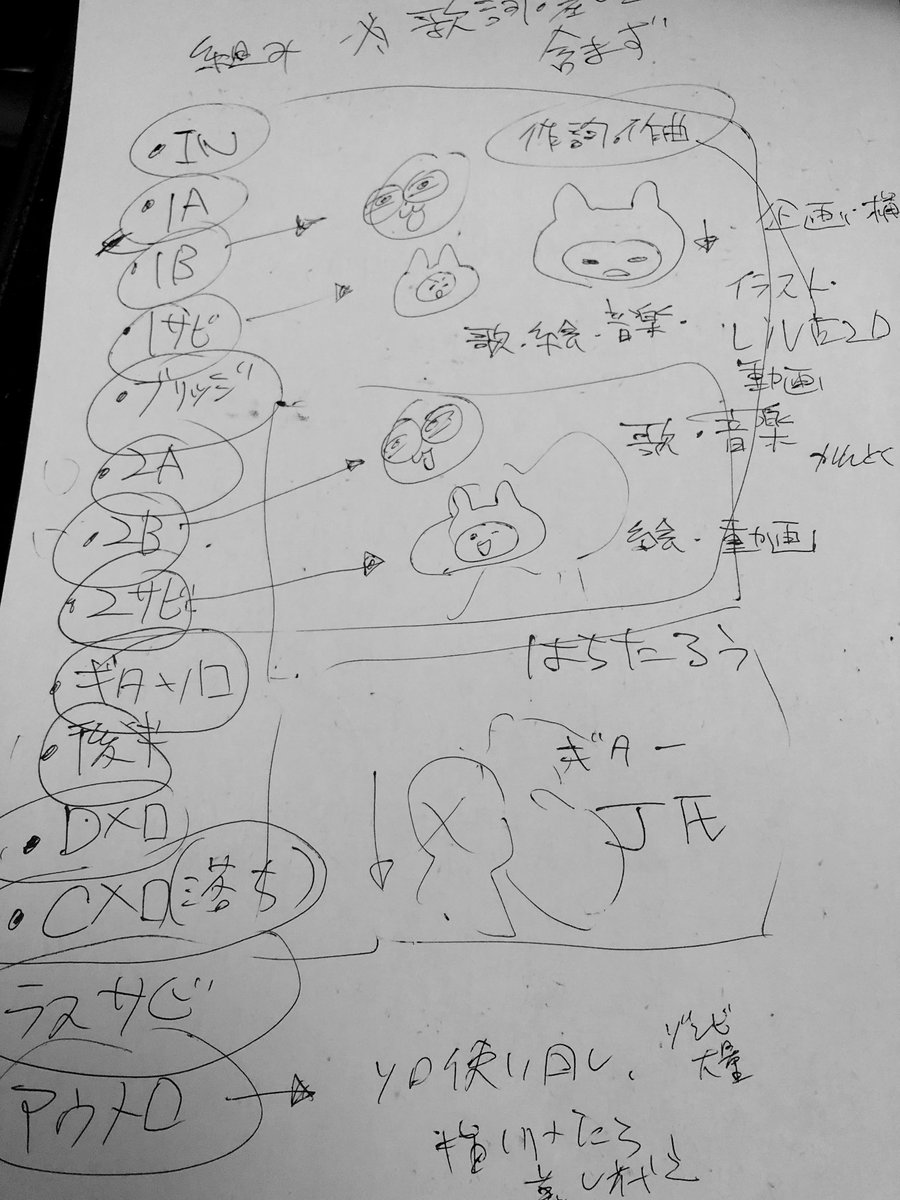 組み 歌詞
含まず
・IN
作詞・作曲
・1A
・1B
企画
イラスト
・1サビ
歌・絵・音楽・
動画
・ブリッジ
歌・音楽
・2A
・2B
絵・動画
・2サビ
はちたろう
・ギターソロ
ギター
・後半
・Dメロ
・Cメロ(落ち)
ラスサビ
ソロ使い回し、
大量
アウトロ